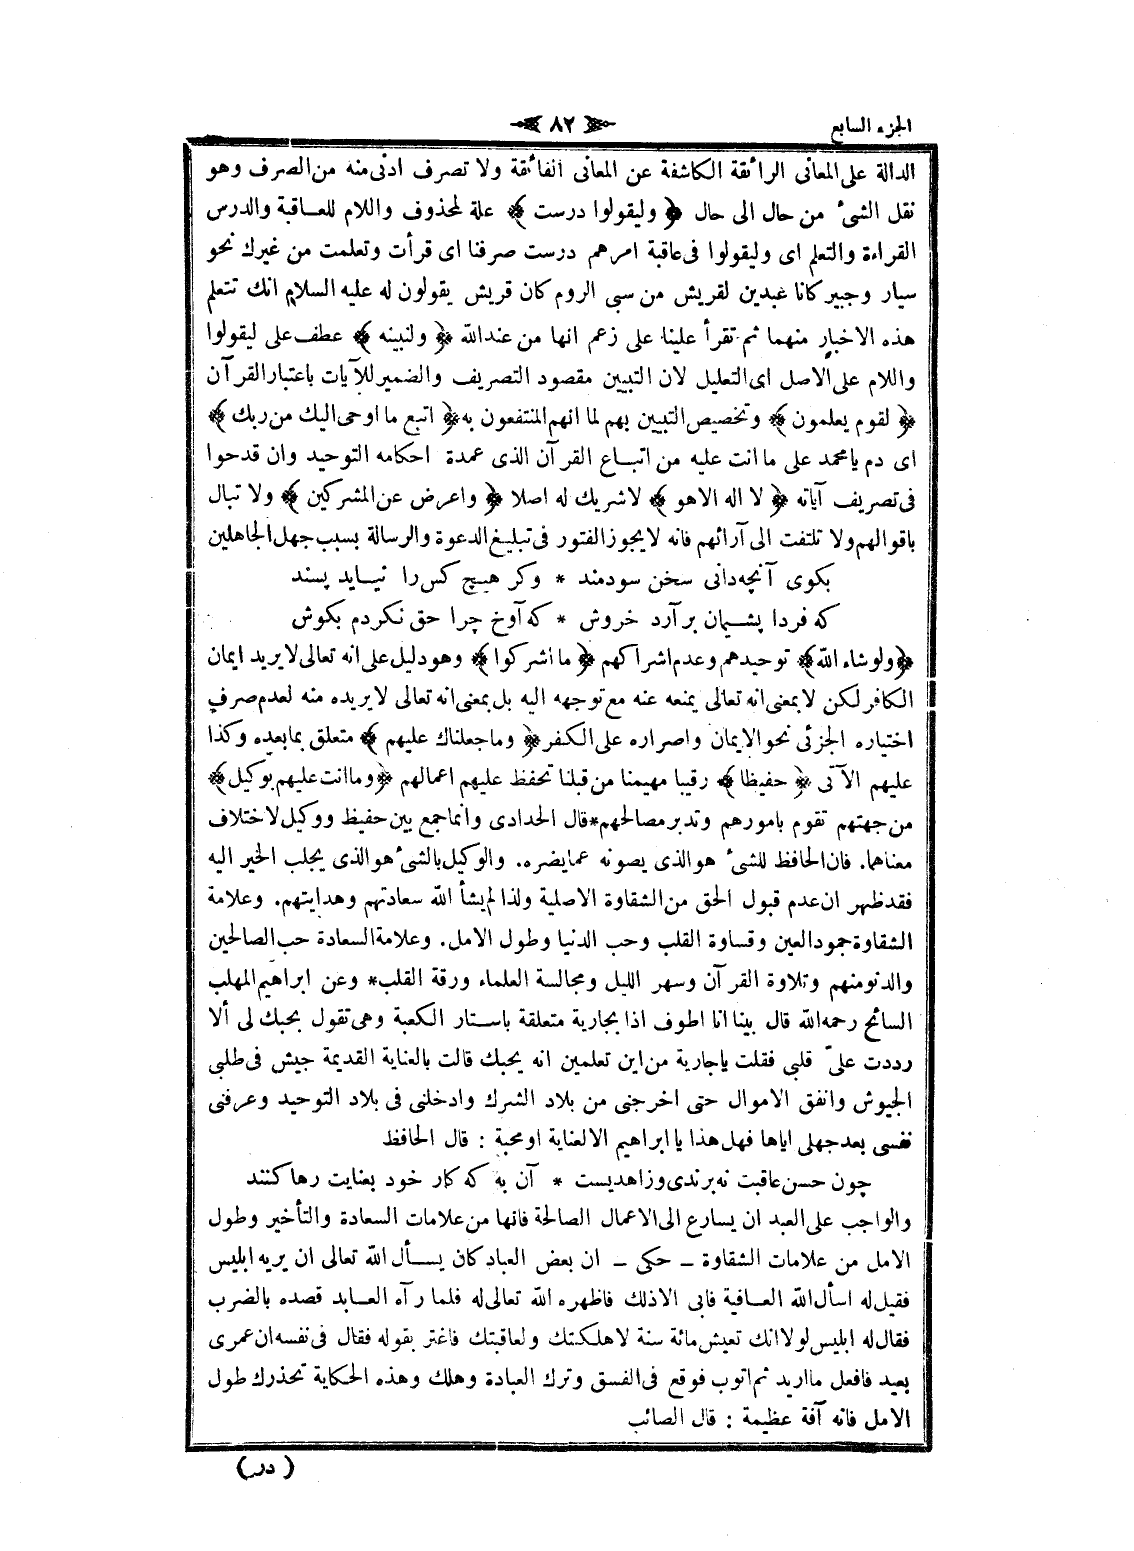 الجزء السابع
٨٢
الدالة على المعانى الرائقة الكاشفة عن المعانى الفائقة ولا تصرف ادنى منه من الصرف وهو
نقل الشىء من حال الى حال ﴿ وليقولوا درست ﴾ علة لمحذوف واللام للعاقبة والدرس
القراءة والتعلم اى وليقولوا فى عاقبة امرهم درست صرفنا اى قرأت وتعلمت من غيرك نحو
سيار وجبير كانا عبدين لقريش من سبى الروم كان قريش يقولون له عليه السلام انك تتعلم
هذه الاخبار منهما ثم تقرأ علينا على زعم انها من عند الله ﴿ ولنبينه ﴾ عطف على ليقولوا
واللام على الاصل اى التعليل لان التبيين مقصود التصريف والضمير للآيات باعتبار القرآن
﴿ لقوم يعلمون ﴾ وتخصيص التبيين بهم لما انهم المنتفعون به ﴿ اتبع ما اوحى اليك من ربك ﴾
اى دم يا محمد على ما انت عليه من اتباع القرآن الذى عمدة احكامه التوحيد وان قدحوا
فى تصريف آياته ﴿ لا اله الا هو ﴾ لا شريك له اصلا ﴿ واعرض عن المشركين ﴾ ولا تبال
باقوالهم ولا تلتفت الى آرائهم فانه لا يجوز الفتور فى تبليغ الدعوة والرسالة بسبب جهل الجاهلين
بكوى آنچه دانى سخن سودمند * وكر هيچ كس را نيايد پسند
كه فردا پشيمان بر آرد خروش * كه آوخ چرا حق نكردم بكوش
﴿ ولو شاء الله ﴾ توحيدهم وعدم اشراكهم ﴿ ما اشركوا ﴾ وهو دليل على انه تعالى لا يريد ايمان
الكافر لكن لا بمعنى انه تعالى يمنعه عنه مع توجهه اليه بل بمعنى انه تعالى لا يريده منه لعدم صرف
اختياره الجزئى نحو الايمان واصراره على الكفر ﴿ وما جعلناك عليهم ﴾ متعلق بما بعده وكذا
عليهم الآتى ﴿ حفيظا ﴾ رقيبا مهيمنا من قبلنا تحفظ عليهم اعمالهم ﴿ وما انت عليهم بوكيل ﴾
من جهتهم تقوم بامورهم وتدبر مصالحهم * قال الحدادى وانما جمع بين حفيظ ووكيل لاختلاف
معناهما. فان الحافظ للشىء هو الذى يصونه عما يضره. والوكيل بالشىء هو الذى يجلب الخير اليه
فقد ظهر ان عدم قبول الحق من الشقاوة الاصلية ولذا لم يشأ الله سعادتهم وهدايتهم. وعلامة
الشقاوة جمود العين وقساوة القلب وحب الدنيا وطول الامل. وعلامة السعادة حب الصالحين
والدنو منهم وتلاوة القرآن وسهر الليل ومجالسة العلماء ورقة القلب * وعن ابراهيم المهلب
السائح رحمه الله قال بينا انا اطوف اذا بجارية متعلقة باستار الكعبة وهى تقول بحبك لى ألا
رددت علىّ قلبى فقلت يا جارية من اين تعلمين انه يحبك قالت بالعناية القديمة جيش فى طلبى
الجيوش وانفق الاموال حتى اخرجنى من بلاد الشرك وادخلنى فى بلاد التوحيد وعرفنى
نفسى بعد جهلى اياها فهل هذا يا ابراهيم الا لعناية او محبة : قال الحافظ
چون حسن عاقبت نه برندى وزاهديست * آن به كه كار خود بعنايت رها كنند
والواجب على العبد ان يسارع الى الاعمال الصالحة فانها من علامات السعادة والتأخير وطول
الامل من علامات الشقاوة ـ حكى ـ ان بعض العباد كان يسأل الله تعالى ان يريه ابليس
فقيل له اسأل الله العافية فابى الا ذلك فاظهره الله تعالى له فلما رآه العابد قصده بالضرب
فقال له ابليس لولا انك تعيش مائة سنة لاهلكتك ولعاقبتك فاغتر بقوله فقال فى نفسه ان عمرى
بعيد فافعل ما اريد ثم اتوب فوقع فى الفسق وترك العبادة وهلك وهذه الحكاية تحذرك طول
الامل فانه آفة عظيمة : قال الصائب
( در )